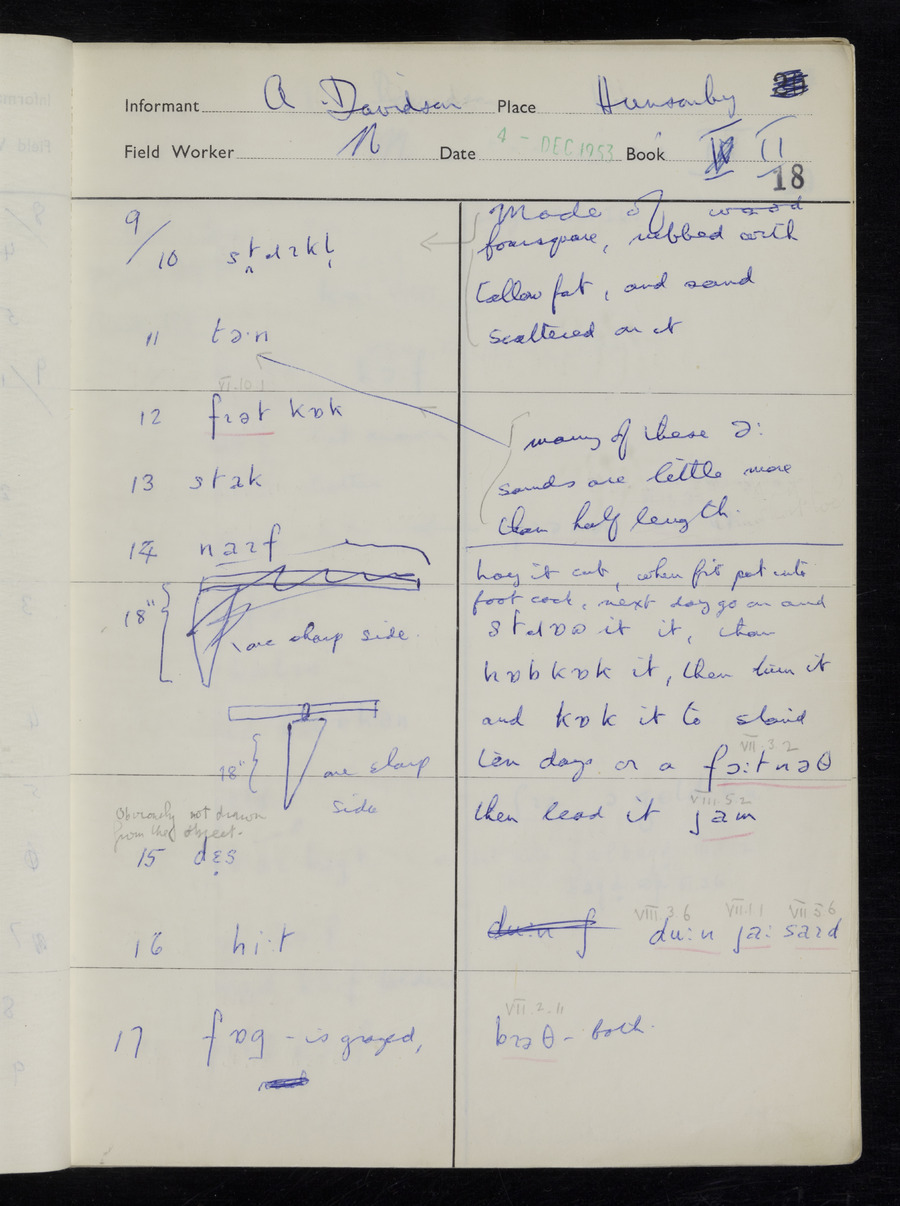 Informant A Davidson Place Hunsonby
Field Worker N Date 4 - DEC 1953 Book II
18
9/10
made of wood
foursquare, rubbed with
tallow fat, and sand
scattered on it
11 tə·n
VI.10.1
12 frət kɒk
many of these ə:
sounds are little more
than half length.
13 stak
14
hay it cut, when fit put into
foot cock, next day go on and
it it, then
18"
one sharp side.
hɒbkɒk it, then turn it
and kɒk it to stand
18"
one sharp
side
VII.3.2
ten days or a fɔ:tnəθ
VIII.5.2
then lead it jam
Obviously not drawn
from the object.
15 dɛs
16 hi:t
VIII.3.6 VII.11 VII.5.6
du:n ja: saɪd
17 fɒg - is grazed,
VII.2.11
- both.